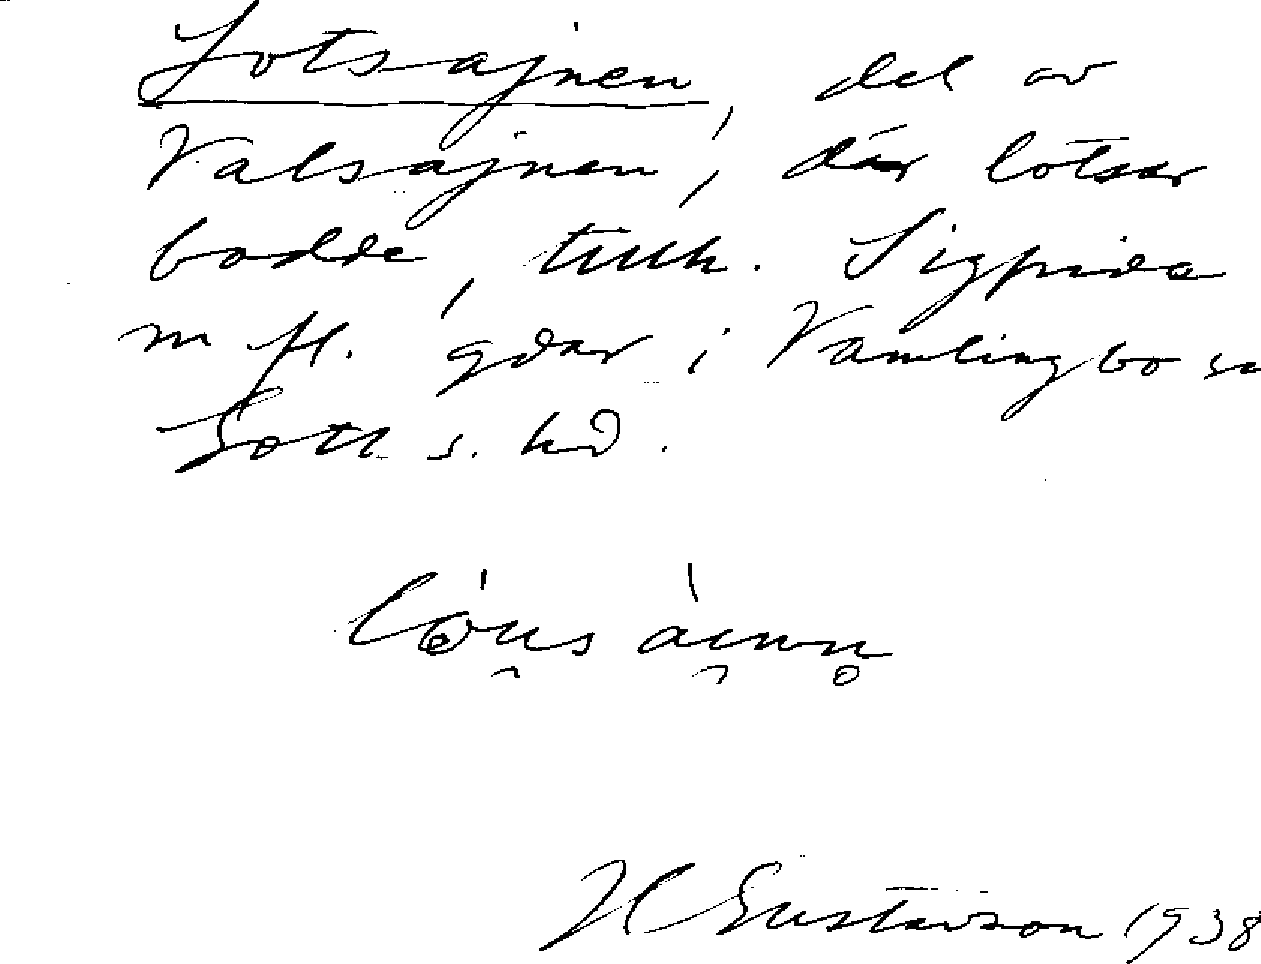 Lotsajnen, del av
Valsajnen, där lotsar
bodde, tillh. Sigpride
m fl. gdar i Vamlingbo sn
Gotl s. hd.
H Gustavson 1938